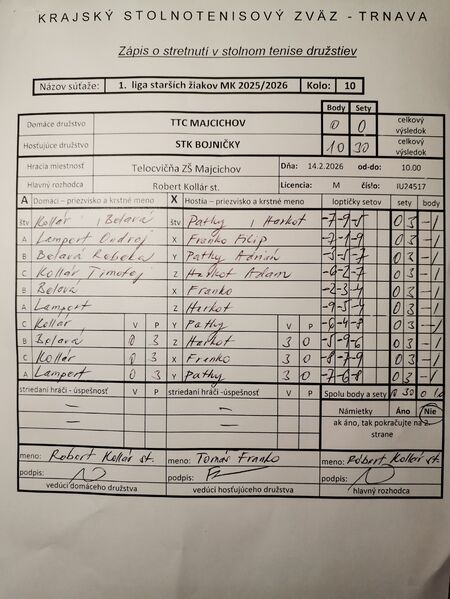 KRAJSKÝ STOLNOTENISOVÝ ZVÄZ - TRNAVA
Zápis o stretnutí v stolnom tenise družstiev
Názov súťaže: 1. liga starších žiakov MK 2025/2026 Kolo: 10
Body Sety
Domáce družstvo TTC MAJCICHOV 0 0 celkový výsledok
Hosťujúce družstvo STK BOJNIČKY 10 30 celkový výsledok
Hracia miestnosť Telocvičňa ZŠ Majcichov Dňa: 14.2.2026 od-do: 10.00
Hlavný rozhodca Robert Kollár st. Licencia: M číslo: IU24517
A Domáci – priezvisko a krstné meno X Hostia – priezvisko a krstné meno loptičky setov sety body
štv Kollár, Belavá štv Pathy, Harkot -7-9-5 0 3 -1
A Lampert Ondrej X Franko Filip -7-1-9 0 3 -1
B Belavá Rebeka Y Pathy Adrián -3-5-7 0 3 -1
C Kollár Timotej Z Harkot Adam -6-2-7 0 3 -1
B Belavá X Franko -2-3-4 0 3 -1
A Lampert Z Harkot -9-5-4 0 3 -1
C Kollár V P Y Pathy V P -6-4-8 0 3 -1
B Belavá 0 3 Z Harkot 3 0 -5-9-6 0 3 -1
C Kollár 0 3 X Franko 3 0 -8-7-9 0 3 -1
A Lampert 0 3 Y Pathy 3 0 -7-6-8 0 3 -1
striedaní hráči - úspešnosť V P striedaní hráči -úspešnosť V P Spolu body a sety 0 30 0 10
– – Námietky Áno Nie
– – ak áno, tak pokračujte na 2. strane
meno: Robert Kollár st. meno: Tomáš Franko meno: Robert Kollár st.
podpis: podpis: podpis:
vedúci domáceho družstva vedúci hosťujúceho družstva hlavný rozhodca